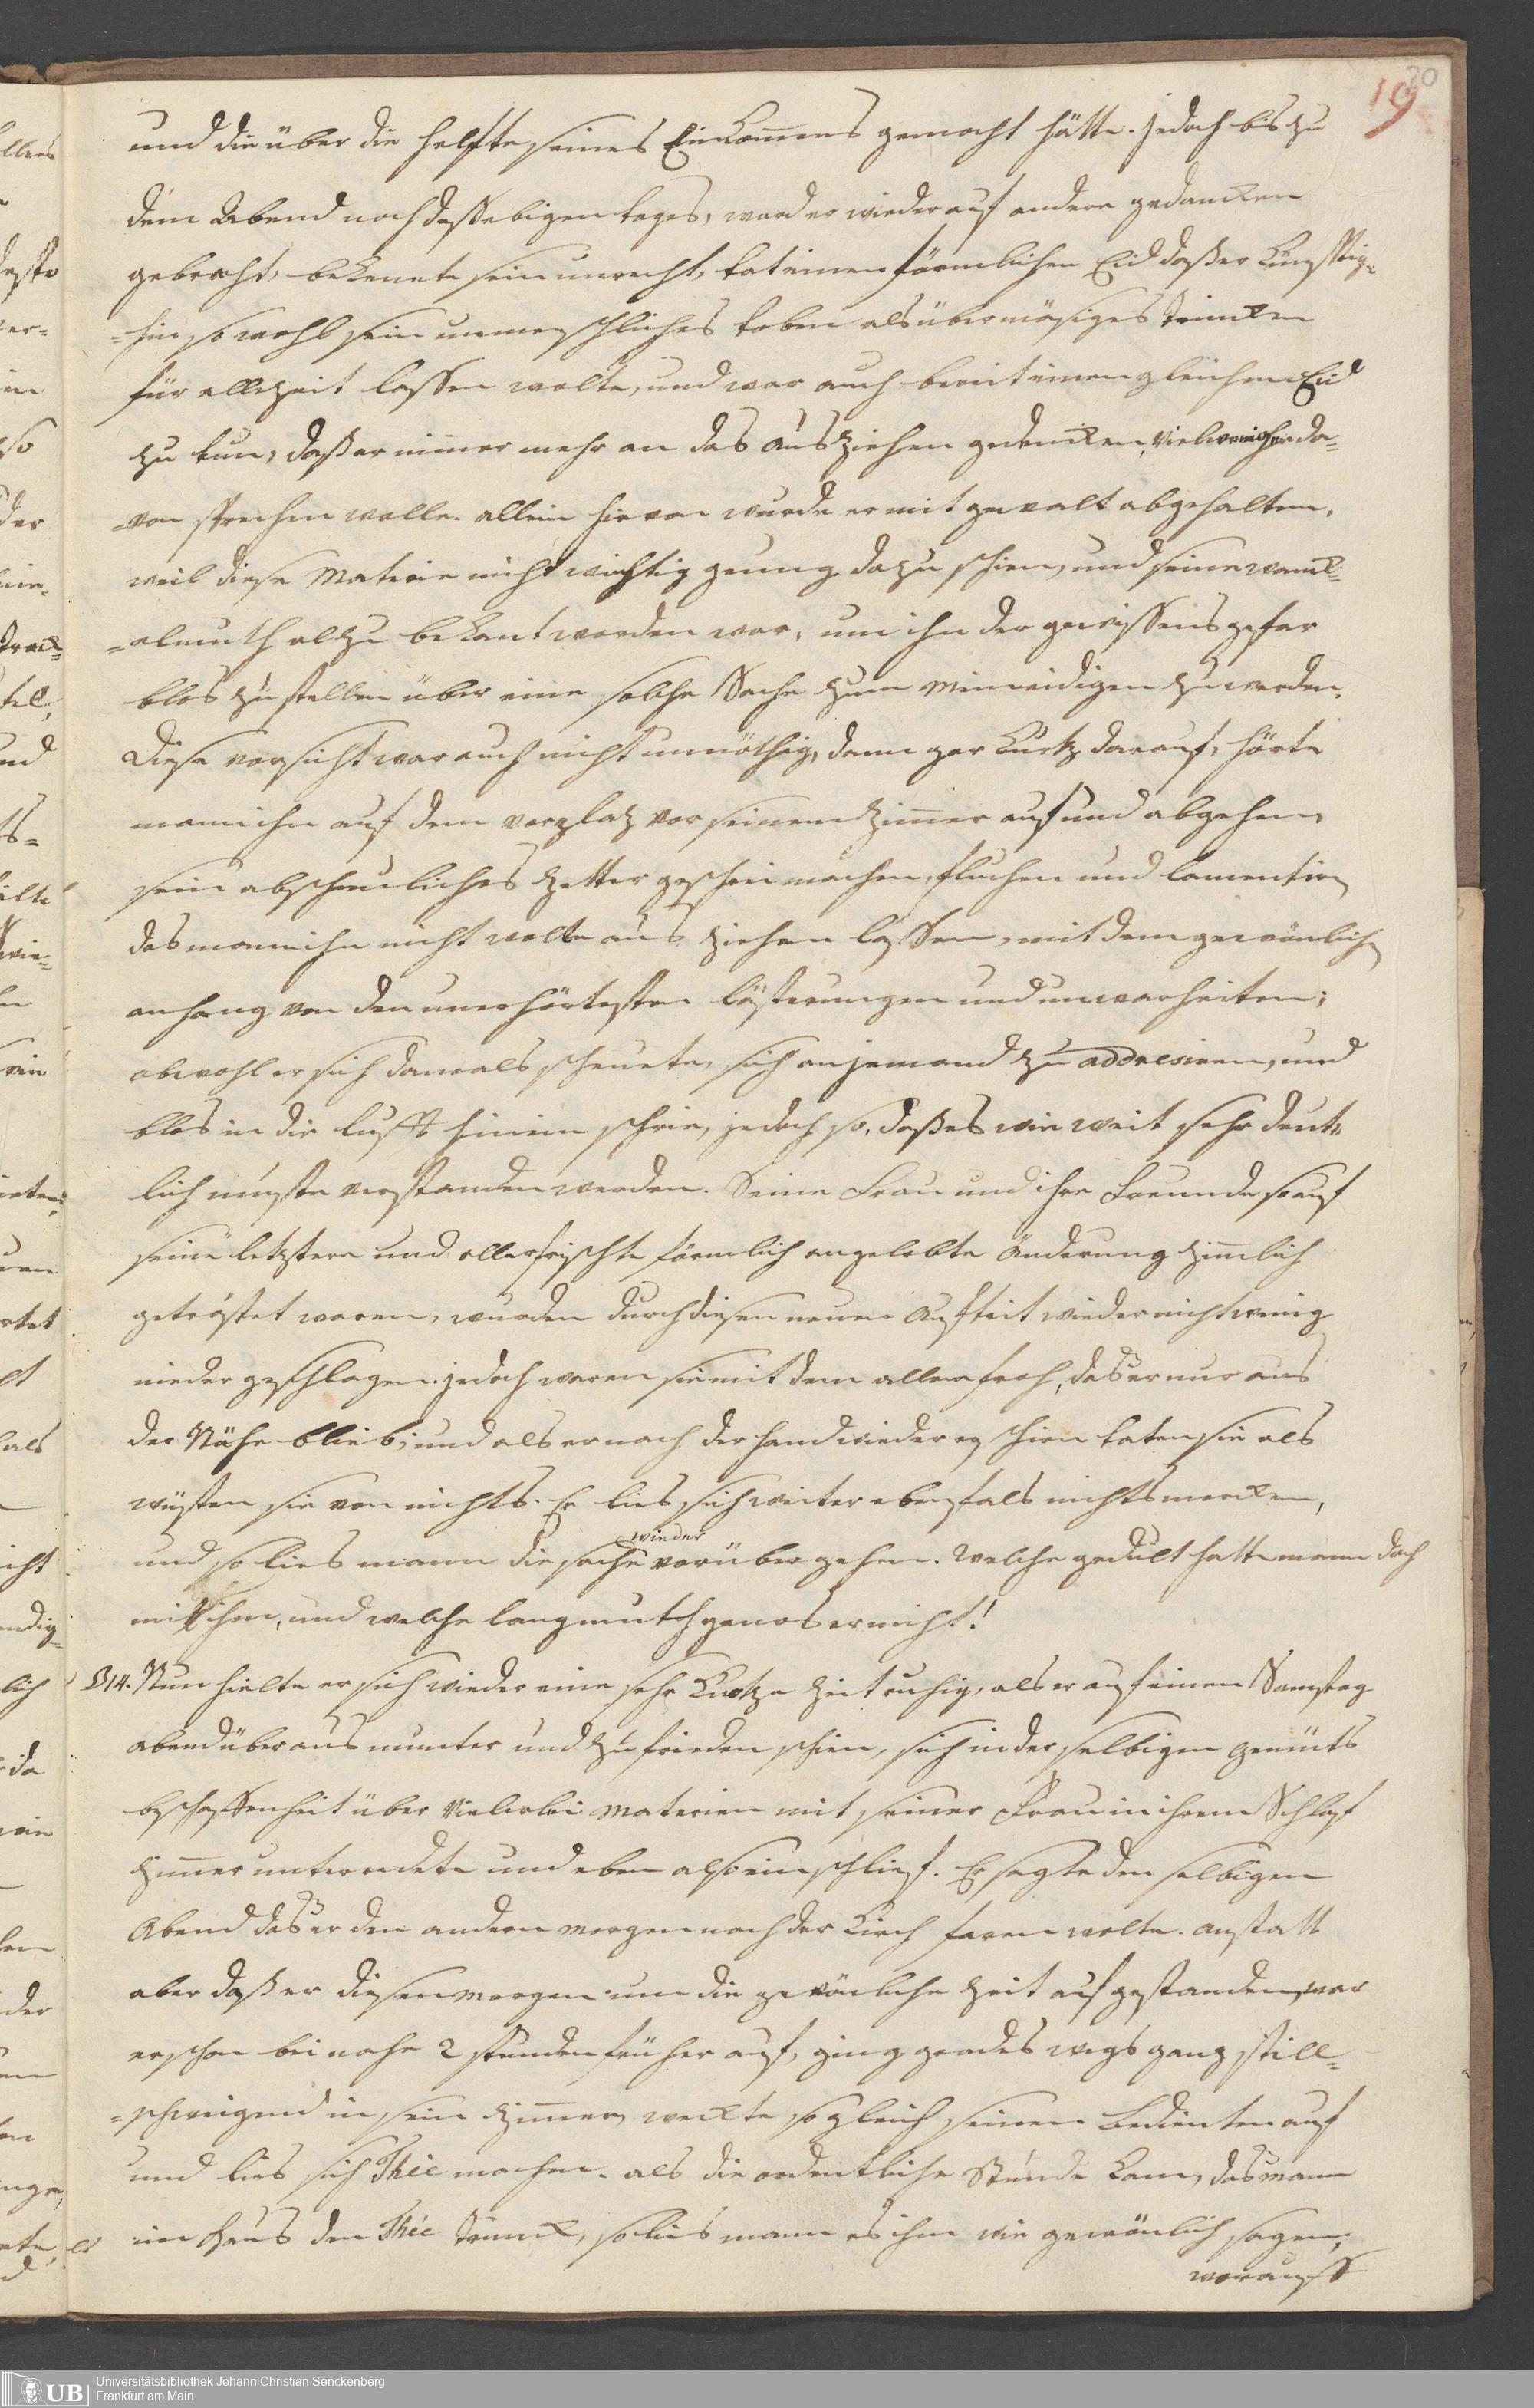 19
20
und die über die helfte seines Einkommens gemacht hätte. jedoch bis zu
dem Abend noch desselbigen tages, ward er wieder auf andere gedancken
gebracht, bekennte sein unrecht, tat einen förmlichen Eid daß er künfftig-
-hin so wohl sein unmenschliches toben als übermäsiges trincken
für allezeit lassen wolte, und war auch bereit einen gleichen Eid
zu tun, daß er nimer mehr an das ausziehen gedencken, vielweniger da-
-von sprechen wolle. allein hievon wurde er mit gewalt abgehalten,
weil diese Materie nicht wichtig genung dazu schien, und seine wanck-
-elmuth alzu bekant worden war, um ihn der gewissens gefar
blos zu stellen über eine solche Sache zum meineidigen zu werden.
Diese vorsicht war auch nicht unnöthig, denn gar kurtz darauf, hörte
mann ihn auf dem vorplaz vor seinem zimer auf und abgehen,
sein abscheuliches zetter geschrei machen, fluchen und lamentiren
das mann ihn nicht wolte aus ziehen lassen, mit dem gewönlichen
anhang von den unerhörtesten lästerungen und unwarheiten;
obwohl er sich damals scheuete, sich an jemand zu addresiren, und
blos in die lufft hinein schrie, jedoch so, daß es wie weit sehr deut-
lich muste verstanden werden. Seine Frau und ihre Freunde so auf
seine letztere und allerfrischte förmlich angelobte änderung zimlich
getröstet waren, wurden durch diesen neuen Auftrit wieder nicht wenig
nieder geschlagen. jedoch waren sie mit dem allem froh, das er nur aus
der Nähe blieb; und als er nach der hand wieder erschien taten sie als
wüsten sie von nichts. Er lies sich weiter ebenfals nichts mercken,
und so lies mann die sache wieder vorüber gehen. Welche gedult hatte mann doch
mit ihm, und welche langmuth genos er nicht!
§14. Nun hielte er sich wieder eine sehr kurtze zeit ruhig, als er auf einen Samstag
abend überaus munter und zufrieden schien, sich in der selbigen gemüts
beschaffenheit über vielerlei materien mit seiner Frau in ihrem Schlaf
zimer unterredete und eben also einschlief. Er sagte den selbigen
Abend das er den andern morgen nach der Kirch faren wolte. anstatt
aber daß er diesen morgen um die gewönliche zeit aufgestanden, war
er schon bei nahe 2 stunden früher auf, ging gerades wegs ganz still-
-schweigend in sein zimer, weckte sogleich seinen bedienten auf
und lies sich Thée machen. als die ordentliche Stunde kam, das mann
im haus den Thée trinckt, so lies mann es ihm wie gewönlich sagen,
worauff
Universitätsbibliothek Johann Christian Senckenberg
Frankfurt am Main
UB